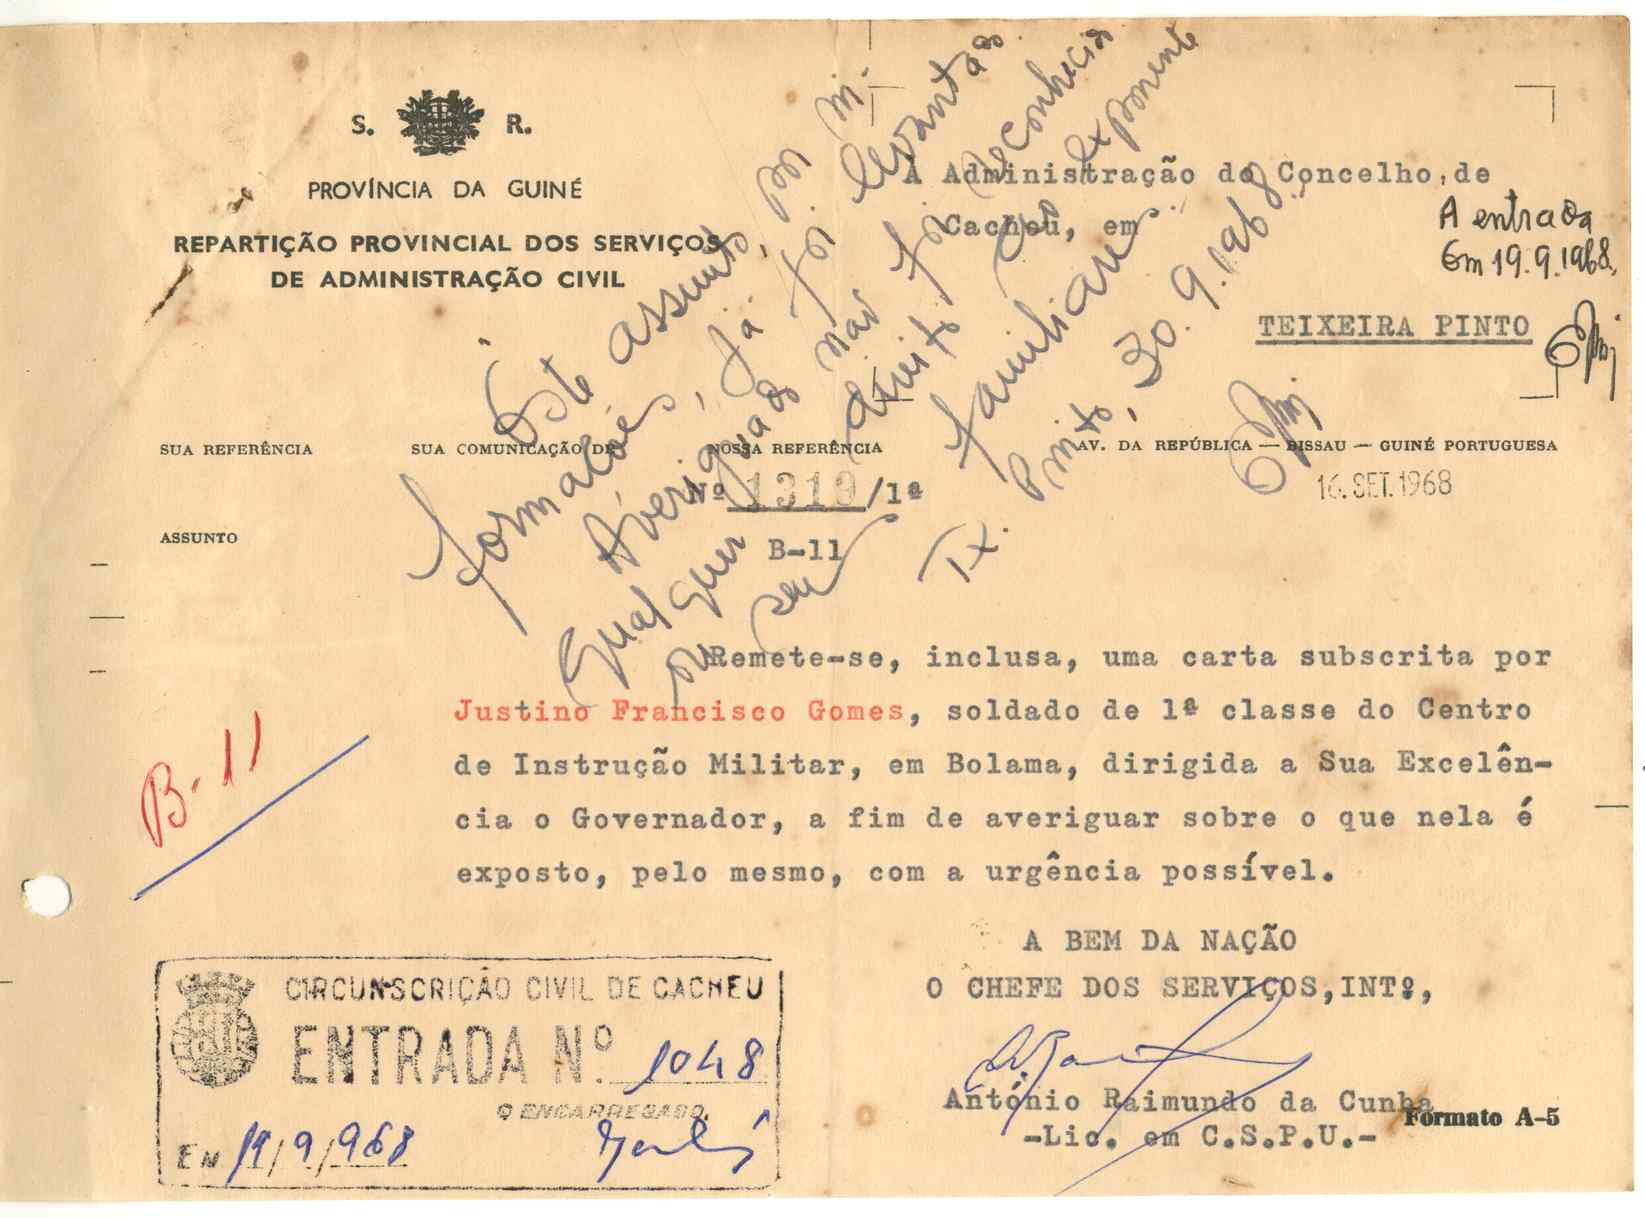 S. R.
PROVÍNCIA DA GUINÉ
REPARTIÇÃO PROVINCIAL DOS SERVIÇOS
DE ADMINISTRAÇÃO CIVIL
À Administração do Concelho, de
Cacheu, em
TEIXEIRA PINTO
A entrada
Em 19.9.1968.
Este assunto, por in-
formações, já foi levantado
Averiguado não foi reconhecido
qual quer direito ao exponente
ou seus familiares.
Tx. Pinto, 30.9.1968.
SUA REFERÊNCIA
SUA COMUNICAÇÃO DE
NOSSA REFERÊNCIA
AV. DA REPÚBLICA — BISSAU — GUINÉ PORTUGUESA
Nº 1319/1ª
16.SET.1968
ASSUNTO
B-11
Remete-se, inclusa, uma carta subscrita por
Justino Francisco Gomes, soldado de 1ª classe do Centro
de Instrução Militar, em Bolama, dirigida a Sua Excelên-
cia o Governador, a fim de averiguar sobre o que nela é
exposto, pelo mesmo, com a urgência possível.
B-11
A BEM DA NAÇÃO
O CHEFE DOS SERVIÇOS,INTº,
António Raimundo da Cunha
-Lic. em C.S.P.U.-
Formato A-5
CIRCUNSCRIÇÃO CIVIL DE CACHEU
ENTRADA Nº. 1048
O ENCARREGADO,
EM 19/9/968